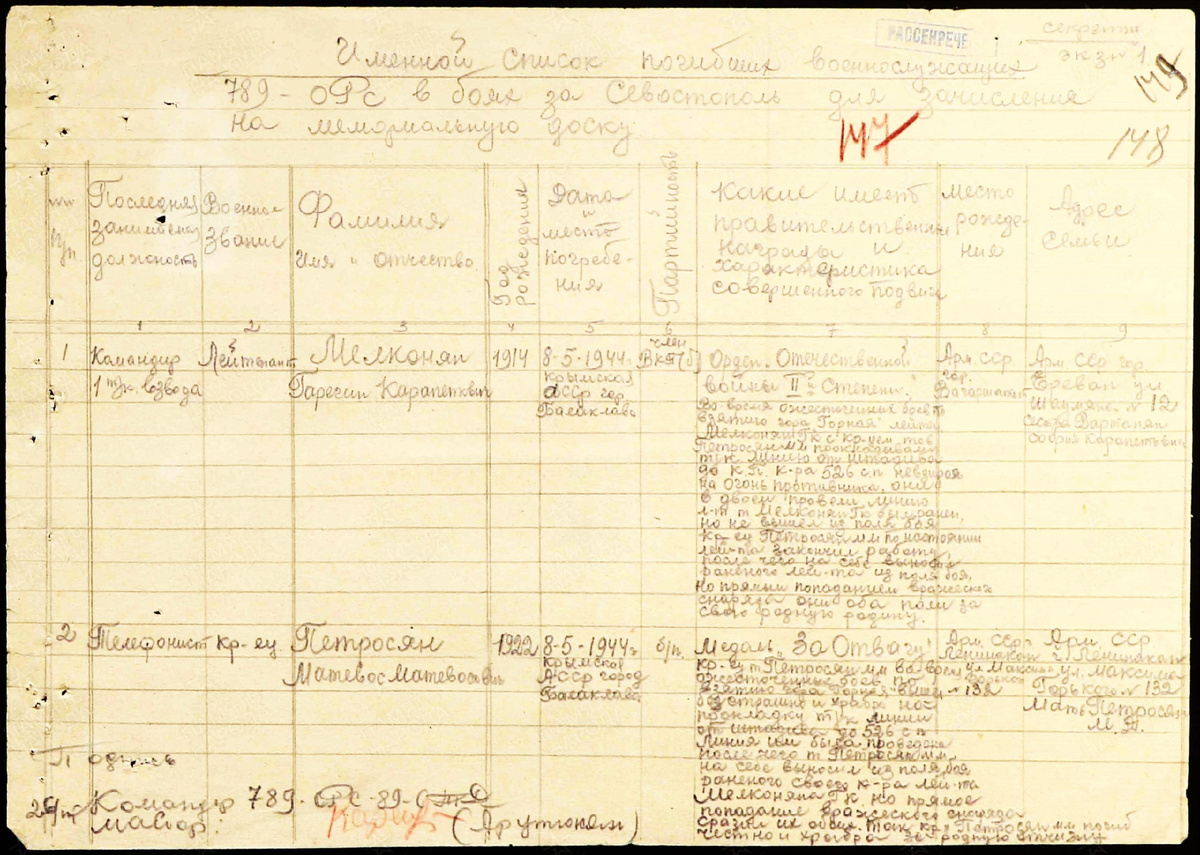 РАССЕКРЕЧЕ
секретн
экз № 1
Именной список погибших военнослужащих
789 - ОРС в боях за Севостополь для зачисления
на мемориальную доску
149
147
148
№№ п/п
Последняя занимаемая должность
Военное звание
Фамилия Имя и отчество
Год рождения
Дата и место погребения
Партийность
Какие имеет правительственные награды и характеристика совершенного подвига
Место рождения
Адрес семьи
1 2 3 4 5 6 7 8 9
1
Командир
1 т/к. взвода
Лейтенант
Мелконян
Гарегин Карапетович
1914
8-5-1944г
Крымская
АССР гор.
Балаклава
член
ВКП(б)
Орден. Отечественной
войны II й Степени.
Во время ожесточенных боев по
взятию гора "Горная" лейтен.
Мелконян Г.К с кр-цем тов
Петросян мм прокладывали
т/к. линию от штадива
до К.П. к-ра 526 с.п невзирая
на огонь противника. они
в двоем провели линию
л-т т Мелконян Г.К был ранен,
но не вышел из поля боя
Кр-ец Петросян мм по настоянии
лей-та закончил работу,
после чего на себе выносил
раненого лей-та из поля боя,
но прямым попаданием вражеских
снаряда они оба пали за
свою родную родину.
Арм. ССР
гор.
Вагаршапат
Арм ССР гор
Ереван ул
Шаумяна. № 12
Сестра Вартанян
София Карапетовна
2
Телефонист
Кр-ец
Петросян
Матевос Матевосович
1922
8-5-1944г
Крымская
АССР город
Балаклава
б/п.
Медаль "За Отвагу"
Кр-ец т Петросян мм во время
ожесточенных боев по
взятию гора "Горная"
бесстрашно и храбро нес
прокладку т/к линии
от штадива до 526 с п
Линия им была проведена
после чего т Петросян мм,
на себе выносил из поля боя
раненого своего к-ра лей-та
Мелконяна Г.К, но прямое
попадание вражеского снаряда
сразил их обоих. так кр. Петросян мм погиб
честно и храбра за родную отчизну
Арм. ССР
Ленинакан
ул Максим
Горьково
№ 132
Арм ССР
г. Ленинакан
ул. Максима
Горького № 132
Мать Петросян
М. Д.
Подпись
Командир 789-ОРС-89-
майор.
(Арутюнян)